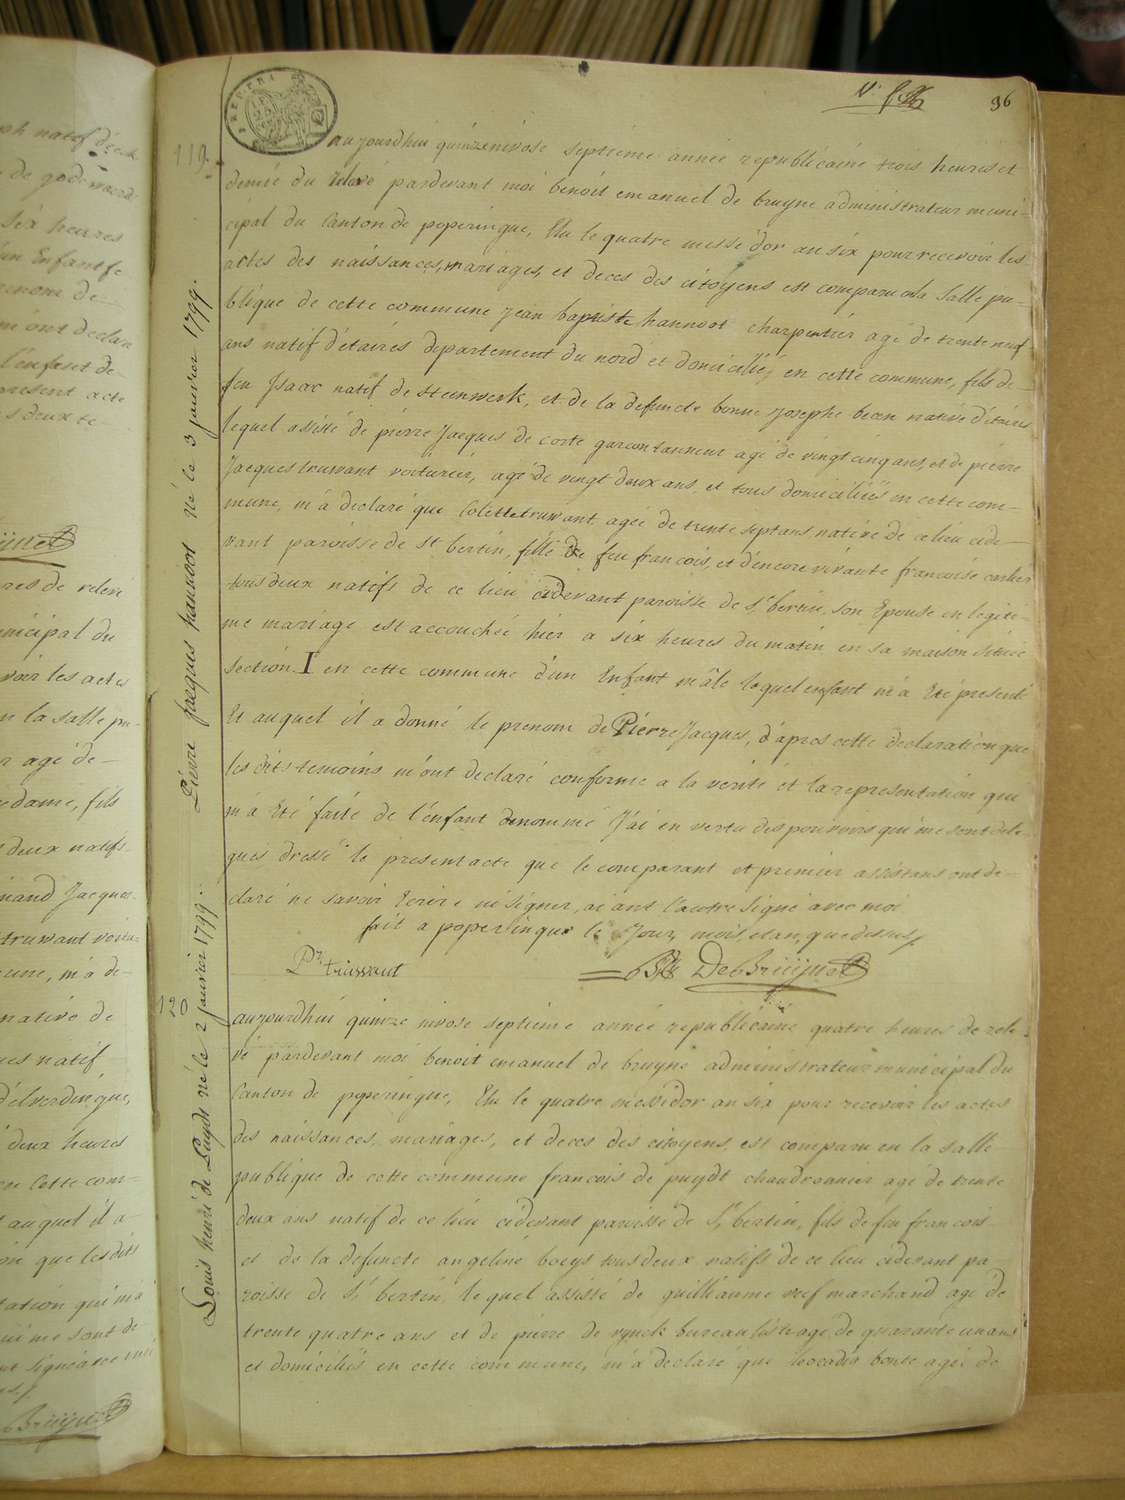 96
119.
Pierre Jacques hannoot né le 3 janvier 1799.
aujourdhui quinze nivose septieme année republicaine trois heures et
demie du relevé pardevant moi benoit emanuel de bruyne administrateur muni-
cipal du Canton de poperingue, Elu le quatre messidor an six pour recevoir les
actes des naissances, mariages, et deces des citoyens est comparu en la Salle pu-
blique de cette commune jean baptiste hannoot charpentier agé de trente neuf
ans natif d'étaires departement du nord et domicilié en cette commune, fils de
feu Isaac natif de Steenwerk, et de la defuncte bonne Josephe becu native d'étaires
lequel assisté de pierre Jacques de corte garcon tanneur agé de vingt cinq ans, et de pierre
Jacques truwant voiturier, agé de vingt deux ans et tous domiciliés en cette com-
mune, m'a declaré que Colette truwant agée de trente sept ans native de ce lieu cide-
vant paroisse de St bertin, fille de feu francois, et d'encore vivante francoise carlier
tous deux natifs de ce lieu cidevant paroisse de St bertin, son Epouse en legiti-
me mariage est accouchée hier a six heures du matin en sa maison située
section I en cette commune d'un Enfant mâle lequel enfant m'a Eté presenté
Et auquel il a donné le prenom de Pierre Jacques, d'apres cette declaration que
les dits temoins m'ont declaré conforme a la verité et la representation qui
m'a Eté faite de l'enfant denommé J'ai en vertu des pouvoirs qui me sont dele-
gués dressé le present acte que le comparant et premier assistans ont de-
claré ne savoir Ecrire ni signer, aiant l'autre signé avec moi
fait a poperingue le Jour, mois, et an, que dessus
Pr truwant
DeBruijne
120
Louis henri de Puydt né le 2 janvier 1799.
aujourdhui quinze nivose septieme année republicaine quatre heures de rele-
vé pardevant moi benoit emanuel de bruyne administrateur municipal du
Canton de poperingue, Elu le quatre messidor an six pour recevoir les actes
des naissances, mariages, et deces des citoyens est comparu en la salle
publique de cette commune francois de puydt chaudronnier agé de trente
deux ans natif de ce lieu cidevant paroisse de St bertin, fils de feu francois
et de la defuncte angeline boeys tous deux natifs de ce lieu cidevant pa-
roisse de St bertin, lequel assisté de guilliaume neef marchand agé de
trente quatre ans et de pierre de rynck bureauliste agé de quarante un ans
et domiciliés en cette commune, m'a declaré que leocadie bonte agée de